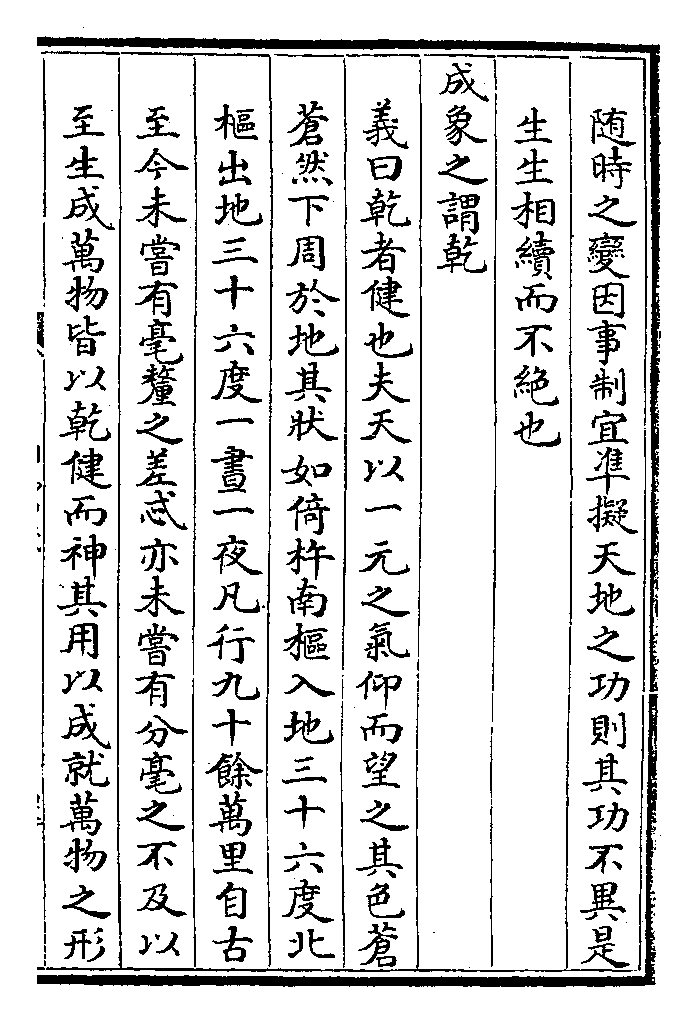 随時之變因事制宜凖擬天地之功則其功不異是
生生相續而不絶也
成象之謂乾
義曰乾者健也夫天以一元之氣仰而望之其色蒼
蒼然下周於地其狀如倚杵南樞入地三十六度北
樞出地三十六度一晝一夜凡行九十餘萬里自古
至今未嘗有毫釐之差忒亦未嘗有分毫之不及以
至生成萬物皆以乾健而神其用以成就萬物之形